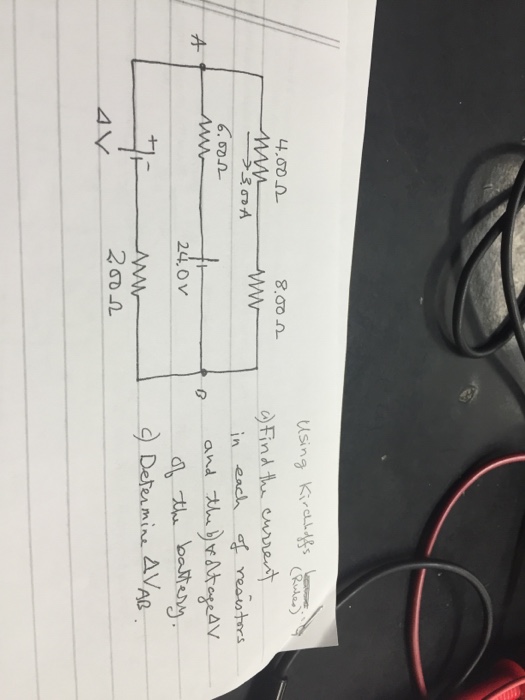 4.00Ω
8.00Ω
3.00A
A
6.00Ω
24.0V
B
+ -
ΔV
2.00Ω
Using Kirchhoffs
(Rules):
a) Find the current
in each of resistors
and the b) voltage ΔV
of the battery.
c) Determine ΔVAB.